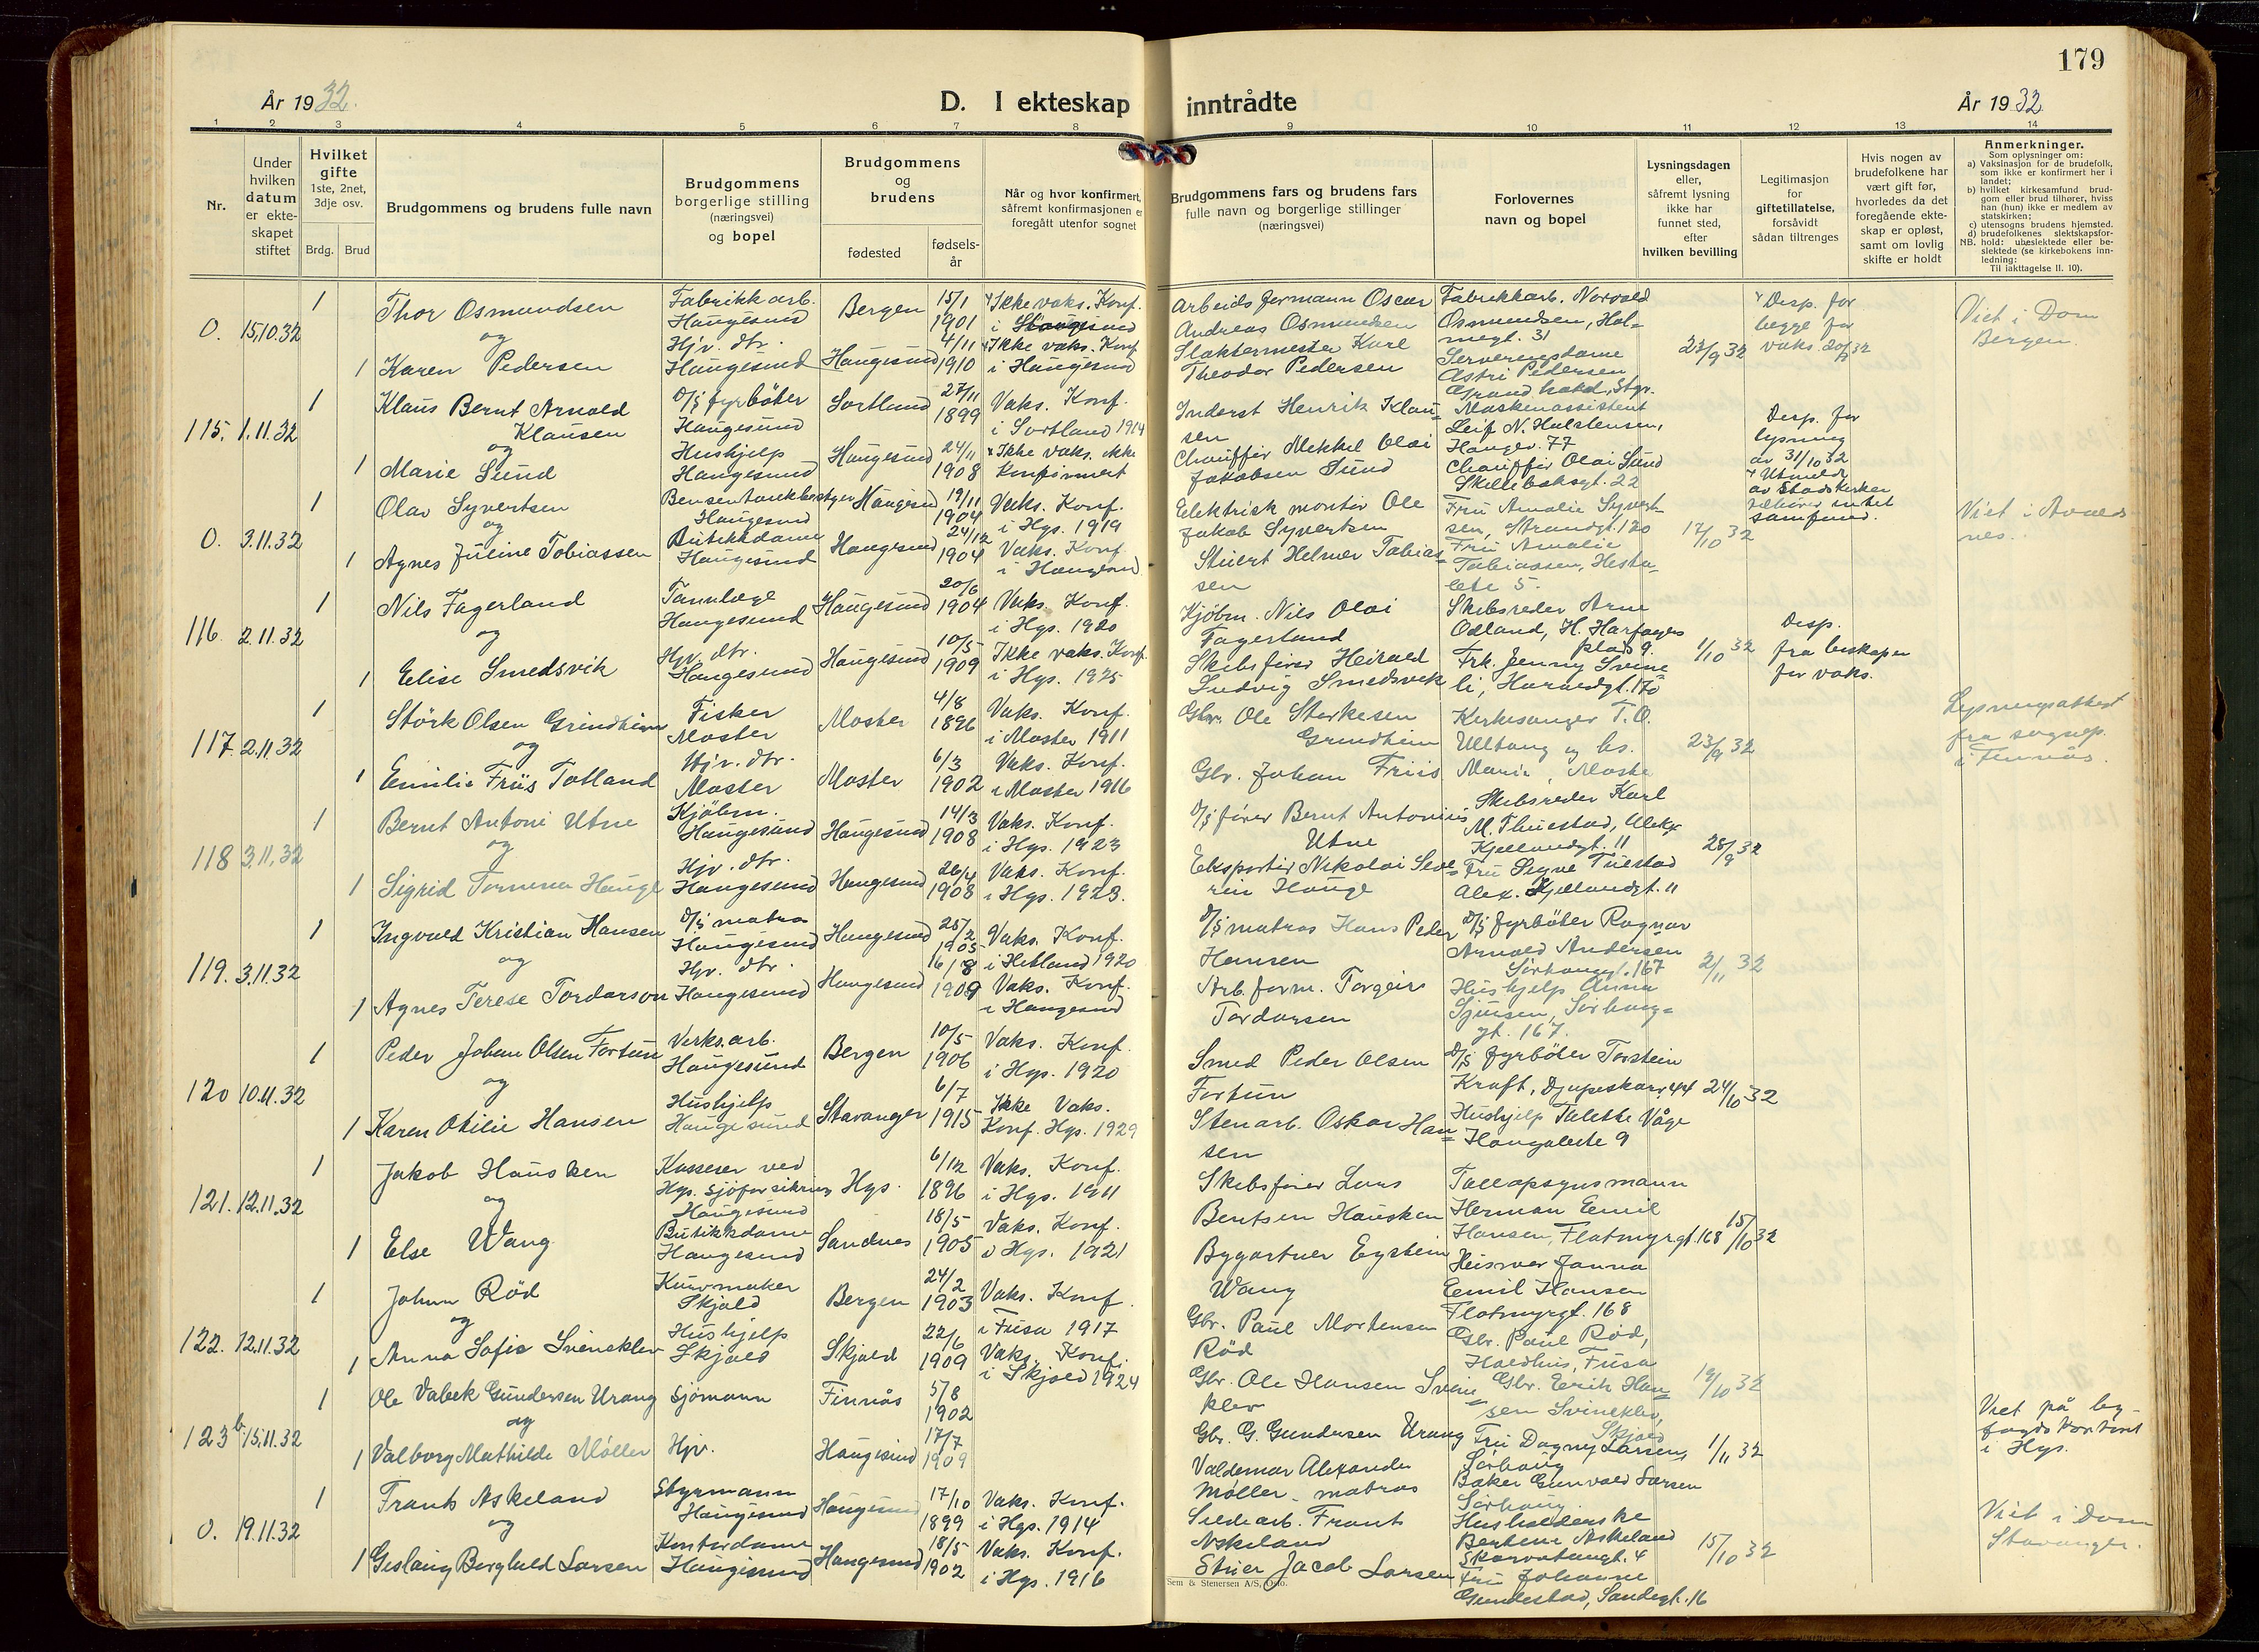 179
År 1932.
D. I ekteskap inntrådte
År 1932
1 2 3 4 5 6 7 8 9 10 11 12 13 14
Nr.
Under
hvilken
datum
er ekte-
skapet
stiftet
Hvilket
gifte
1ste, 2net,
3dje osv.
Brdg. Brud
Brudgommens og brudens fulle navn
Brudgommens
borgerlige stilling
(næringsvei)
og bopel
Brudgommens
og
brudens
fødested
fødsels-
år
Når og hvor konfirmert,
såfremt konfirmasjonen er
foregått utenfor sognet
Brudgommens fars og brudens fars
fulle navn og borgerlige stillinger
(næringsvei)
Forlovernes
navn og bopel
Lysningsdagen
eller,
såfremt lysning
ikke har
funnet sted,
efter
hvilken bevilling
Legitimasjon
for
giftetillatelse,
forsåvidt
sådan tiltrenges
Hvis nogen av
brudefolkene har
vært gift før,
hvorledes da det
foregående ekte-
skap er opløst,
samt om lovlig
skifte er holdt
Anmerkninger.
Som oplysninger om:
a) Vaksinasjon for de brudefolk,
som ikke er konfirmert her i
landet;
b) hvilket kirkesamfund brud-
gom eller brud tilhører, hviss
han (hun) ikke er medlem av
statskirken;
c) utensogns brudens hjemsted.
d) brudefolkenes slektskapsfor-
NB. hold: ubeslektede eller be-
slektede (se kirkebokens inn-
ledning:
Til iakttagelse II. 10).
0. 15.10.32
1 Thor Osmundsen
og
1 Karen Pedersen
Fabrikkarb.
Haugesund
Hjv. dtr.
Haugesund
Bergen
Haugesund
15/1
1901
4/11
1910
Ikke vaks. Konf.
i Haugesund
Ikke vaks. Konf.
i Haugesund
Arbeidsformann Oscar
Andreas Osmundsen
Slaktermester Karl
Theodor Pedersen
Fabrikkarb. Norvald
Osmundsen, Hol-
megt. 31
Serveringsdame
Astri Pedersen
Grand hotel, Stgr.
23/9 32
Desp. for
begge for
vaks. 20/9 32
Viet i Dom
Bergen.
115. 1.11.32
1 Klaus Bernt Arnold
Klausen
og
1 Marie Sund
D/S fyrbøter
Haugesund
Hushjelp
Haugesund
Sortland
Haugesund
27/11
1899
24/11
1908
Vaks. Konf.
i Sortland 1914
Ikke vaks. ikke
konfirmert
Inderst Henrik Klau-
sen
Chauffør Mekkel Olai
Jakobsen Sund
Maskinassistent
Leif N. Halstensen,
Haugev. 77
Chauffør Olai Sund
Skillebeksgt. 22
Desp. for
lysning
av 31/10 32
Utmeldt
av Statskirken
tilhører intet
samfund.
0. 3.11.32
1 Olav Syvertsen
og
1 Agnes Juline Tobiassen
Haugesund
Butikkdame
Haugesund
Haugesund
Haugesund
19/11
1904
24/12
1904
Vaks. Konf.
i Hgs. 1919
Vaks. Konf.
i Haugesund
Elektrisk montør Ole
Jakob Syvertsen
Stuert Helmer Tobias-
sen
Fru Amalie Syvert-
sen, Strandgt. 120
Fru Amalie
Tobiassen, Hesta-
lete 5.
17/10 32
Viet i Avalds-
nes.
116. 2.11.32
1 Nils Fagerland
og
1 Elise Smedsvik
Tannlege
Haugesund
Hjv. dtr.
Haugesund
Haugesund
Haugesund
20/6
1904
10/5
1909
Vaks. Konf.
i Hgs. 1920
Ikke vaks. Konf.
i Hgs. 1925
Kjøbm. Nils Olai
Fagerland
Skibsfører Heirald
Ludvig Smedsvik
Skibsreder Arne
Odland, H. Harfagers
plads 9.
Frk. Jenny Svine
li, Haraldgt. 170
1/10 32
Desp.
fra beskaper
for vaks.
117. 2.11.32
1 Størk Olsen Grindheim
og
1 Emilie Friis Totland
Fisker
Moster
Hjv. dtr.
Moster
Moster
Moster
4/8
1896
6/3
1902
Vaks. Konf.
i Moster 1911
Vaks. Konf.
i Moster 1916
Gbr. Ole Storkesen
Grindheim
Gbr. Johan Friis
Kirkesanger T. O.
Ulltang og hs.
Marie, Moster
23/9 32
Lysningsattest
fra sognep.
i Finnås.
118 3.11.32
1 Bernt Antoni Utne
og
1 Sigrid Hauge
Kjøbm.
Haugesund
Hjv. dtr.
Haugesund
Haugesund
Haugesund
14/3
1908
26/4
1908
Vaks. Konf.
i Hgs. 1923
Vaks. Konf.
i Hgs. 1923.
D/S fører Bernt Antonius
Utne
Eksportør Nikolai Seve-
rin Hauge
Skibsreder Karl
M. Thuestad, Alex.
Kjellandgt. 11
Fru Signe Tuestad
Alex. Kjellandgt. 11
28/9 32
119. 3.11.32
1 Ingvald Kristian Hansen
og
1 Agnes Terese Tordarson
D/S matros
Haugesund
Hjv. dtr.
Haugesund
Haugesund
Haugesund
28/2
1905
16/8
1909
Vaks. Konf.
i Hetland 1920
Vaks. Konf.
i Haugesund
D/S matros Hans Peder
Hansen
Arb. form. Torgeir
Tordarsen
D/S fyrbøter Ragnar
Arnold Andersen
Sørhauggt. 167
Hushjelp Anna
Sjursen, Sørhaug-
gt. 167.
2/11 32
120 10.11.32
1 Peder Johan Olsen Fortun
og
1 Karen Otilie Hansen
Verks.arb.
Haugesund
Hushjelp
Haugesund
Bergen
Stavanger
10/5
1906
6/7
1915
Vaks. Konf.
i Hgs. 1920
Ikke Vaks.
Konf. Hgs. 1929
Smed Peder Olsen
Fortun
Stenarb. Oskar Han-
sen
D/S fyrbøter Torstein
Kraft, Djupeskarv. 44
Hushjelp Talette Våge
Haugalete 9
24/10 32
121. 12.11.32
1 Jakob Hausken
og
1 Else Wang
Kasserer ved
Hgs. sjøforsikring
Haugesund
Butikkdame
Haugesund
Hgs.
Sandnes
6/12
1896
18/5
1905
Vaks. Konf.
i Hgs. 1911
Vaks. Konf.
i Hgs. 1921
Skibsfører Lars
Bentsen Hausken
Bygartner Eystein
Wang
Tallopsynsmann
Herman Emil
Hansen, Flotmyrgt. 168
Husmor Janna
Emil Hansen
Flotmyrgt. 168
15/10 32
122. 12.11.32
1 Johan Rød
og
1 Anna Sofie Svineklev
Kurvmaker
Skjold
Hushjelp
Skjold
Bergen
Skjold
24/2
1903
22/6
1909
Vaks. Konf.
i Fusa 1917
Vaks. Konf.
i Skjold 1924
Gbr. Paul Mortensen
Rød
Gbr. Ole Hansen Svine-
klev
Gbr. Paul Rød,
Holdhus, Fusa
Gbr. Erik Han-
sen Svineklev,
Skjold
19/10 32
123 b. 15.11.32
1 Ole Vabek Gundersen Urang
og
1 Valborg Mathilde Møller
Sjømann
Hjv.
Finnås
Haugesund
5/8
1902
17/7
1909
Gbr. G. Gundersen Urang
Valdemar Alexander
Møller, matros
Fru Dagny Larsen,
Sørhaug
Baker Gunvald Larsen
Sørhaug.
1/11 32
Viet på by-
fogdkontoret
i Hgs.
0. 19.11.32
1 Frants Askeland
og
1 Gislaug Borghild Larsen
Styrmann
Haugesund
Kontordame
Haugesund
Haugesund
Haugesund
17/10
1899
18/5
1902
Vaks. Konf.
i Hgs. 1914
Vaks. Konf.
i Hgs. 1916
Sildearb. Frants
Askeland
Jacob Larsen
Husholderske
Askeland
Skarvatungt. 4
Fru Johanne
Gundestad, Sandsgt. 16
15/10 32
Viet i Dom
Stavanger.
Sem & Stenersen A/S, Oslo.